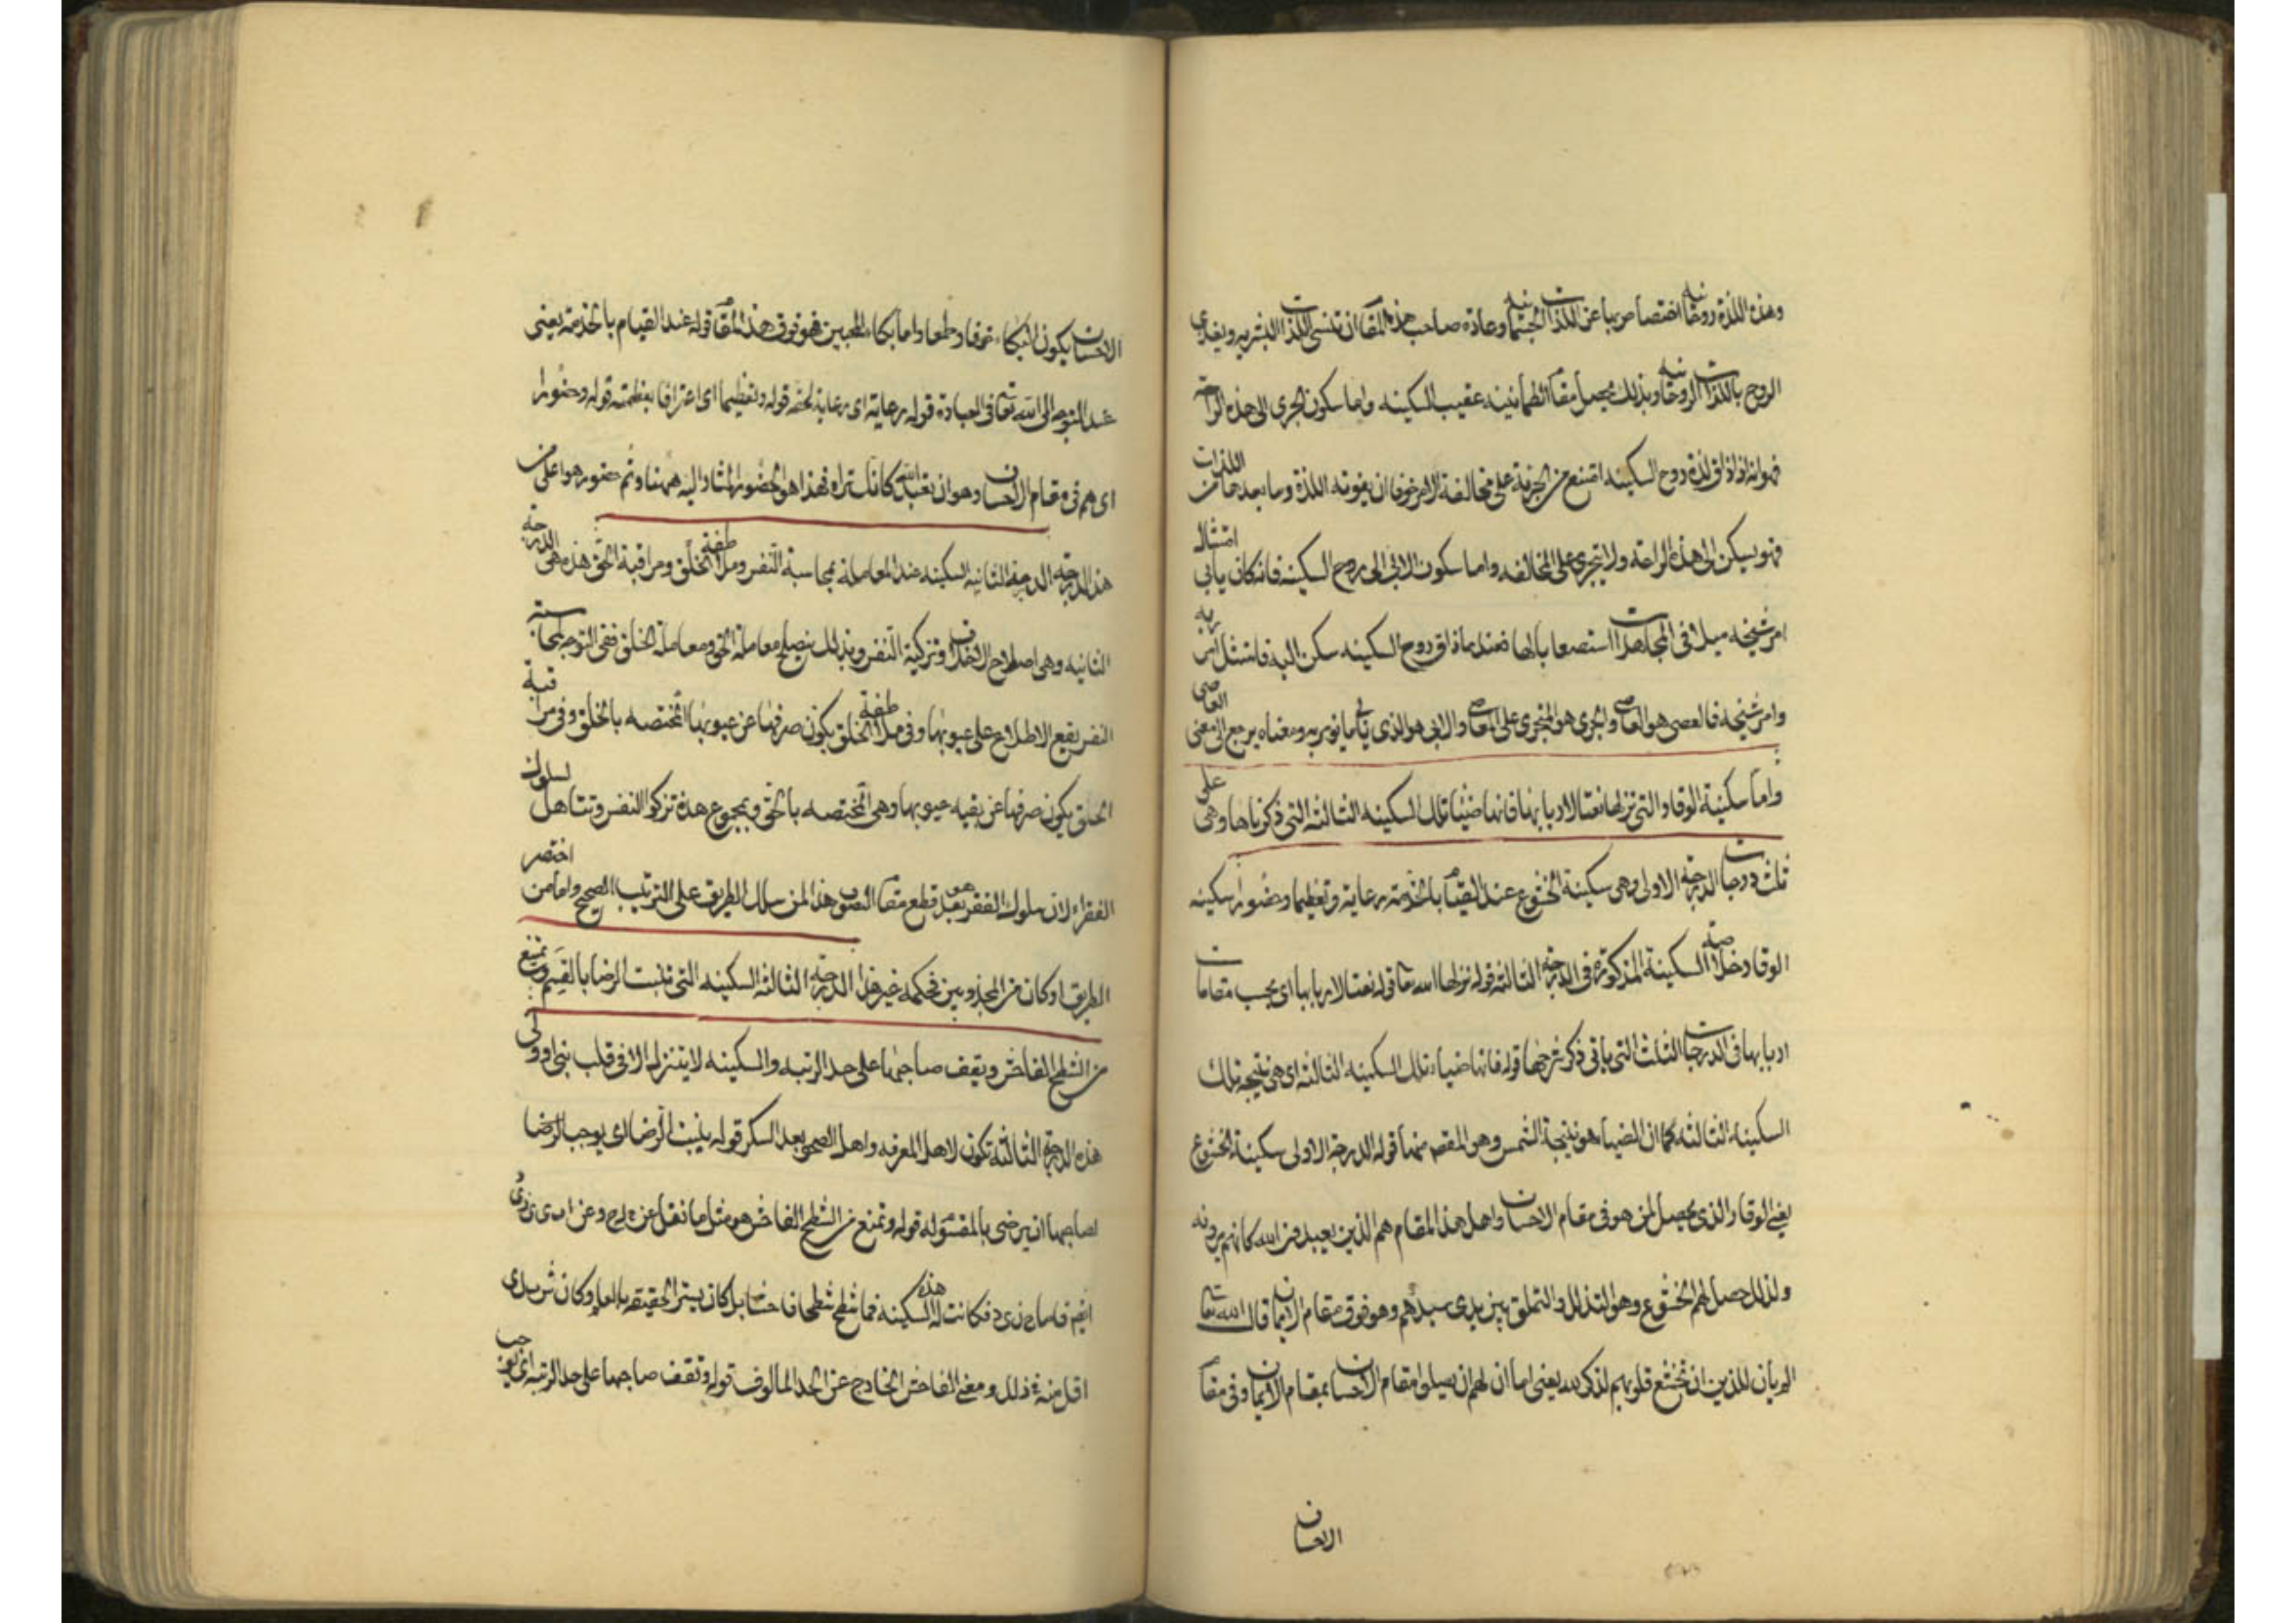 وهذه اللذة روحانية اختصاص ربها عن اللذات الجسمانية وعادة صاحب هذه المقام ان تنسى اللذات البشريه ويغذي
الروح باللذات الروحانيه وبذلك يحصل مقام الطمأنينه عقيب السكينه واما سكون الجرى الى هذه الراحة
فهو انه اذا ذاق لذة روح السكينه امتنع من الجرية على مخالفة الامر خوفا ان يفوته اللذة وما بعدها من اللذات
فهو يسكن الى هذه الراحة ولا يتجرى على المخالفه واما سكون الابي الى روح السكينه فانه كان يابى امتثال
امر شيخه ميلا فى المجاهدات استصعابا لها فعندما ذاق روح السكينه سكن اليه فامتثل امر ربه
وامر شيخه فالعصى هو العاصى والجرى هو المتجرى على المعاصى والابى هو الذى يابى ما يومر به ومعناه يرجع الى معنى العاصى
واما سكينة الوقار التى نزلها نعتا لاربابها فانها ضياء تلك السكينه الثالثه التى ذكرناها وهى على
ثلث درجات الدرجة الاولى وهى سكينة الخشوع عند القيام بالخدمة رعاية وتعظيما وحضورا سكينه
الوقار خلاصة السكينة المذكورة فى الدرجة الثالثة قوله نزلها الله تعا قوله نعتا لاربابها اى بحسب مقامات
اربابها فى الدرجات الثلث التى ياتى ذكر شرحها قوله فانها ضياء تلك السكينه الثالثه اى هى نتيجه تلك
السكينه الثالثه كما ان الضياء هو نتيجة الشمس وهو المقصم منها قوله الدرجة الاولى سكينة الخشوع
يعني الوقار الذى يحصل لمن هو فى مقام الاحسان واهل هذا المقام هم الذين يعبدون الله كانهم يرونه
ولذلك حصل لهم الخشوع وهو التذلل والتملق بين يدى سيدهم وهو فوق مقام الايمان قال الله تعا
الم يان للذين ان تخشع قلوبهم لذكر الله يعنى اما ان لهم ان يصلوا مقام الاحسان بمقام الايمان وفى مقام
الاحسان
الاحسان يكون البكاء خوفا وطمعا واما بكاء المحبين فهو فوق هذا المقام قوله عند القيام بالخدمة يعنى
عند التوجه الى الله تعا فى العبادة قوله رعاية اى رعاية لحقه قوله وتعظيما اى اعترافا بعظمته قوله وحضورا
اى هم فى مقام الاحسان وهو ان تعبد الله كانك تراه فهذا هو الحضور المشار اليه ههنا وثم حضور هو اعلى من
هذا الدرجة الدرجة الثانيه السكينه عند المعاملة بمحاسبة النفس وملاطفة الخلق ومراقبة الحق هذه هى الدرجة
الثانيه وهى اصلاح الاخلاق وتزكية النفس وبذلك يصلح معاملة الحق ومعاملة الخلق ففى التوجه لمحاسبة
النفس يقع الاطلاع على عيوبها وفى ملاطفة الخلق يكون صرفها عن عيوبها المختصه بالخلق وفى مراقبة
الحق يكون صرفها عن بقيه عيوبها وهى المختصه بالحق وبمجموع هذه تزكوا النفس وتتاهل لسلوك
الفقراء لان سلوك الفقر هو بعد قطع مقام التصوف هذا لمن سلك الطريق على الترتيب الصحيح واما من اختصر
الطريق او كان من المجذوبين فحكمه غير هذا الدرجة الثالثه السكينه التى تثبت الرضا بالقسم وتمنع
من الشطح الفاحش ويقف صاحبها على حد الرتبه والسكينه لا يتنزل الا فى قلب نبى او ولى
هذه الدرجة الثالثه تكون لاهل المعرفه واهل الصحو بعد السكر قوله يثبت الرضا اى يوجب الرضا
لصاحبها ان يرضى بالمقسوم له قوله وتمنع من الشطح الفاحش هو مثل ما نقل عن
فكانت له هذه السكينه فما شطح شطحا فاحشا بل كان يستر الحقيقه بالعلم وكان
اقل منه فى ذلك ومعنى الفاحش الخارج عن الحد المالوف قوله وتقف صاحبها على حد الرتبه اى يوجب